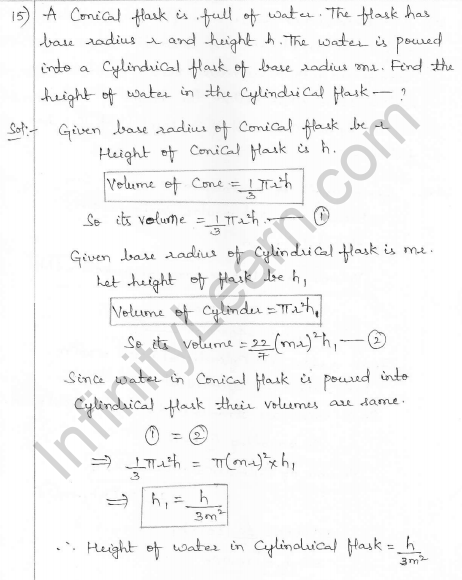 15) A Conical flask is full of water. The flask has
base radius r and height h. The water is poured
into a Cylindrical flask of base radius mr. Find the
height of water in the Cylindrical flask — ?
Sol:- Given base radius of Conical flask be r
Height of Conical flask is h.
Volume of Cone = 1/3 πr²h
So its volume = 1/3 πr²h —— ①
Given base radius of Cylindrical flask is mr.
Let height of flask be h₁
Volume of Cylinder = πr²h₁
So its volume = 22/7 (mr)²h₁ — ②
Since water in Conical flask is poured into
Cylindrical flask their volumes are same.
① = ②
⇒ 1/3 πr²h = π(mr)² × h₁
⇒ h₁ = h/3m²
∴ Height of water in Cylindrical flask = h/3m²
InfinityLearn.com